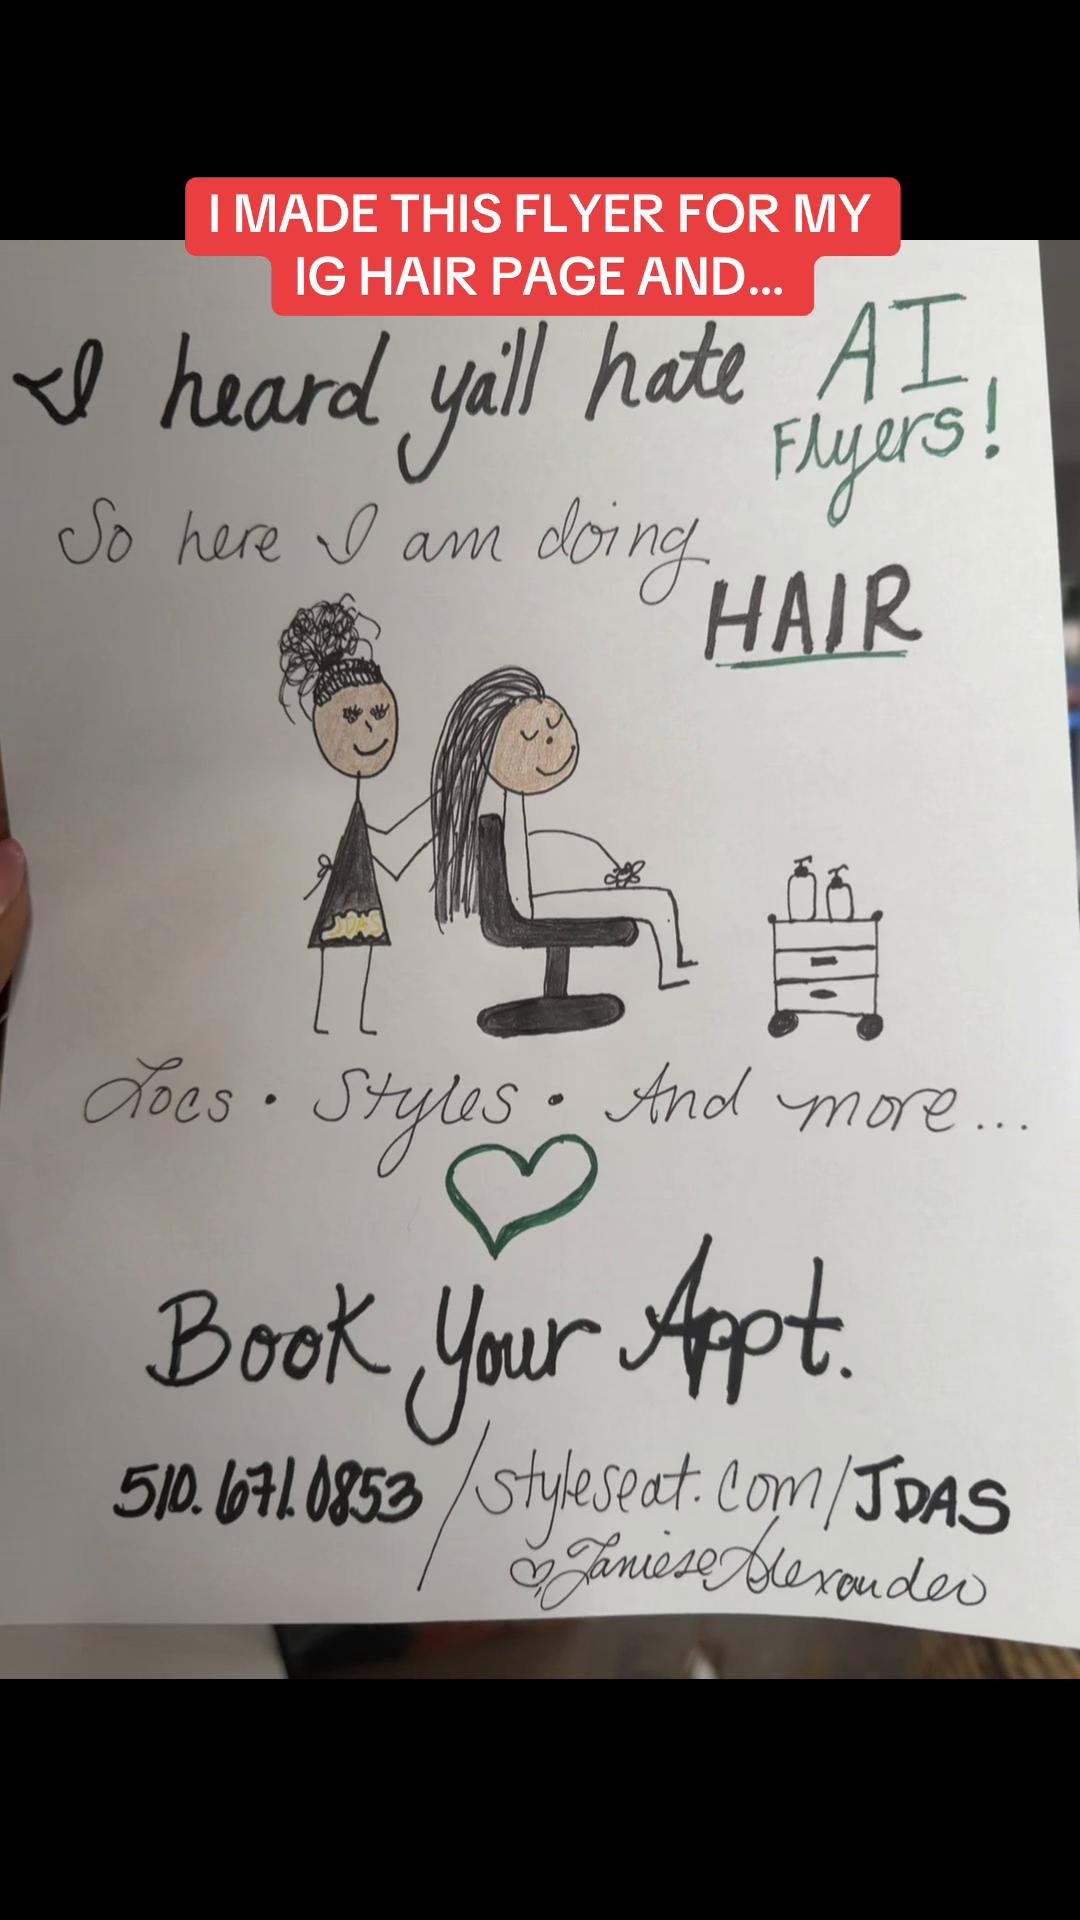 I MADE THIS FLYER FOR MY
IG HAIR PAGE AND...
I heard ya'll hate AI
Flyers!
So here I am doing
HAIR
JDAS
Locs • Styles • And more...
Book Your Appt.
510.671.0853 / styleseat.com/JDAS
Janiese Alexander